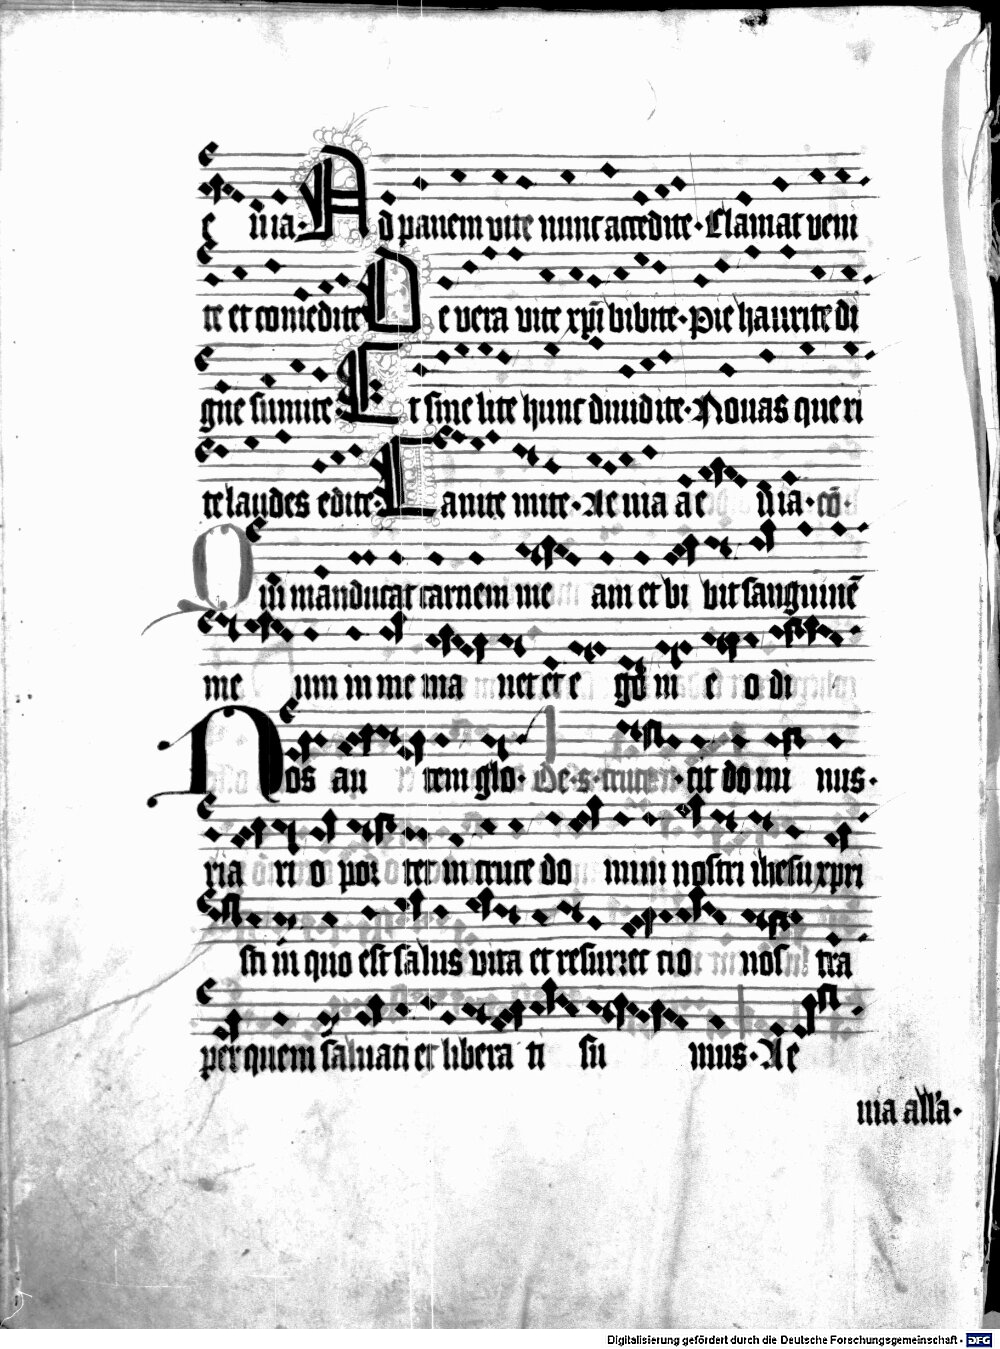 e uia· Ad panem vite nunc accedite· Clamat veni
te et comedite De vera vite xp̄i bibite· Pie haurite di
gne sumite· Et sine lite hunc diuidite· Nouas que ri
te laudes edite· Lauite mite· Ae uia a e
Qui manducat carnem me am et bi bit sanguinē
me um in me ma net et e go in e o di
Nos au tem glo· De·s·cruce· cit do mi nus·
ria ri o por tet in cruce do mini nostri ihesu xpri
sti in quo est salus vita et resurrec cio nos tra
per quem saluati et libera ti su mus· Ae
uia all'a·
Digitalisierung gefördert durch die Deutsche Forschungsgemeinschaft - DFG